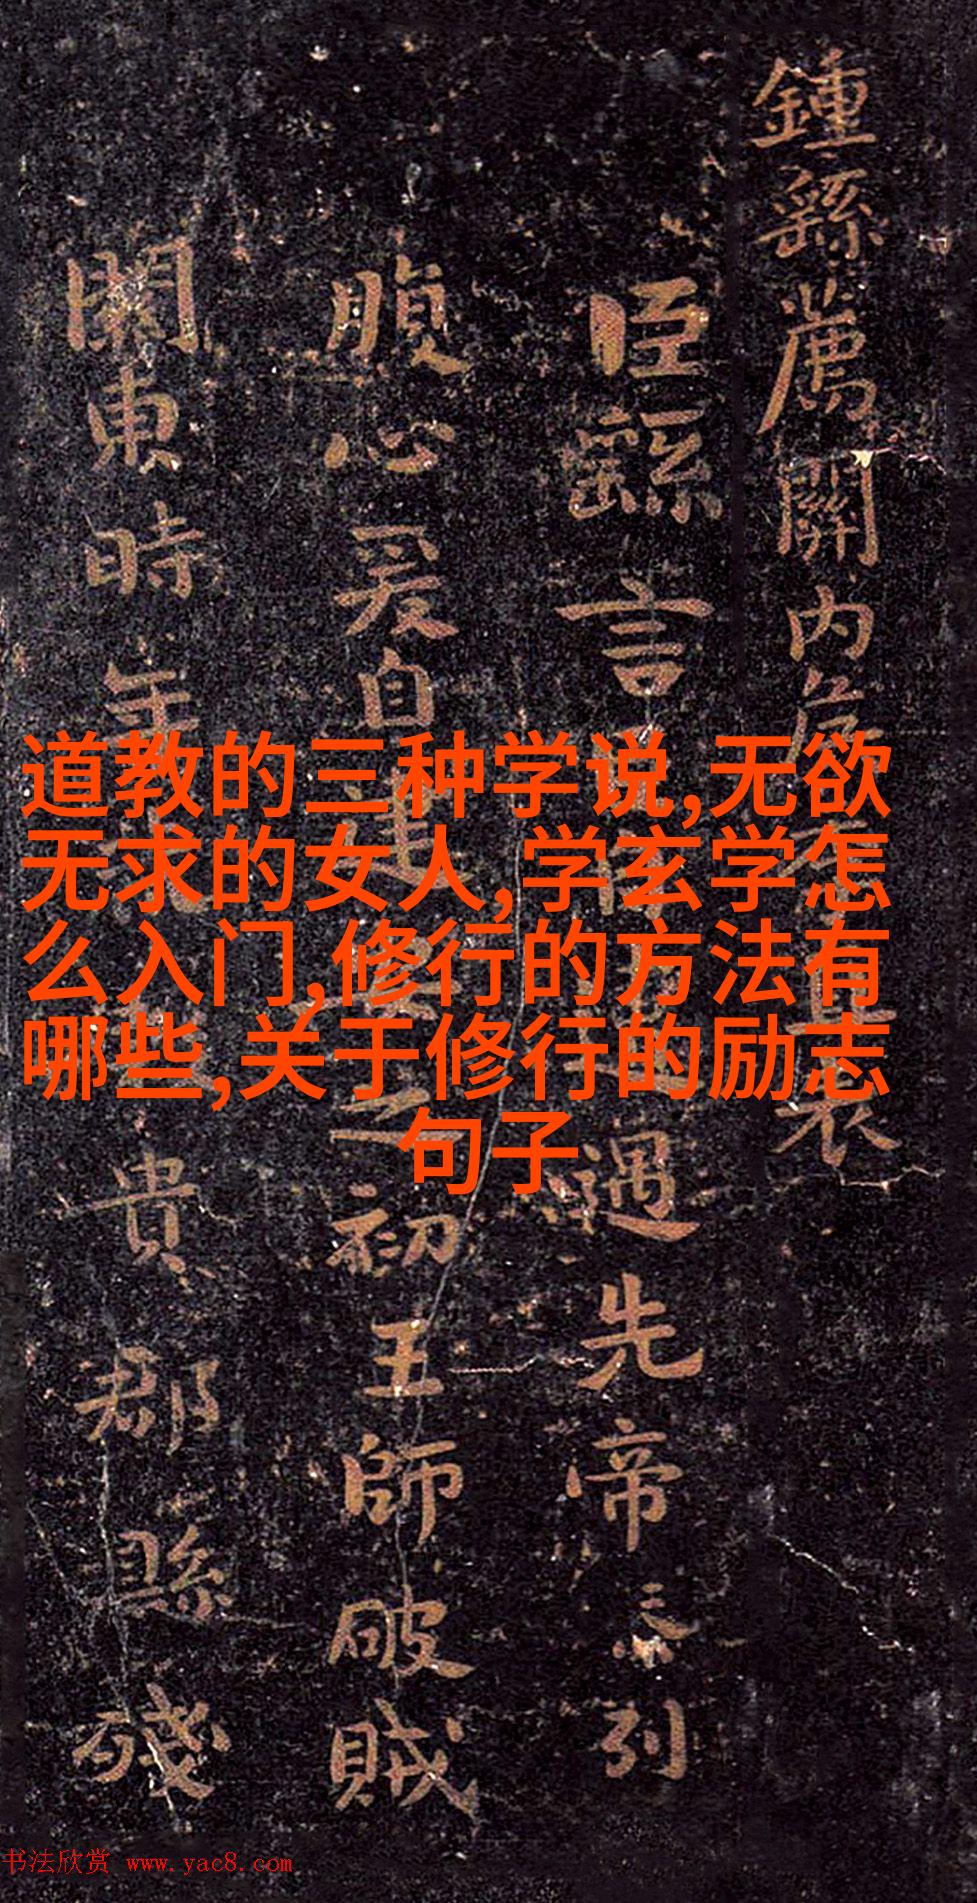 鍾繇薦關内侯直表
臣繇言遇先帝忝列
腹心爰自建之初王師破賊
關東時年貴郡縣殘
道教的三种学说,无欲
无求的女人,学玄学怎
么入门,修行的方法有
哪些,关于修行的励志
句子
书法欣赏 www.yac8.com